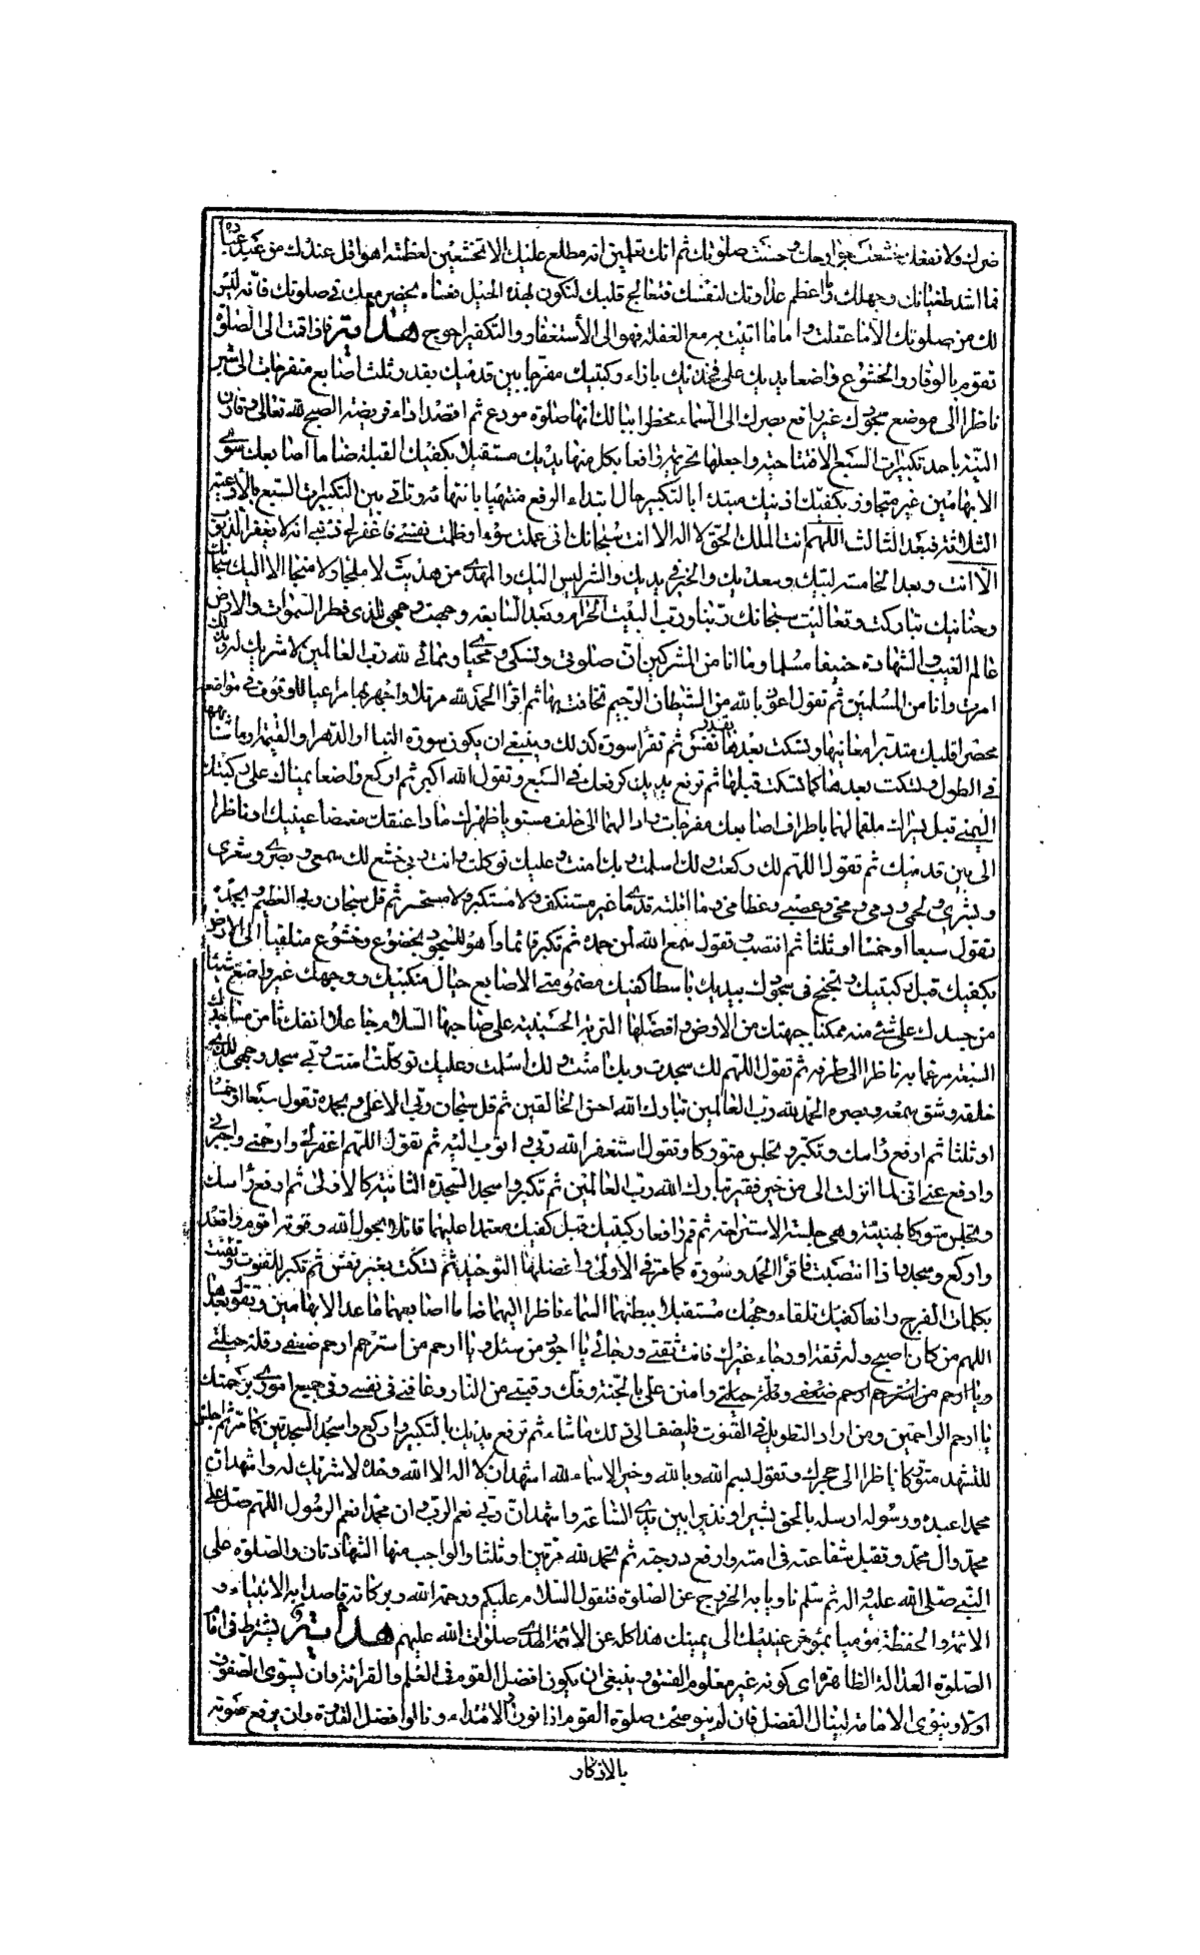 ضرك ولا نفعك خشعت جوارحك وحسنت صلوتك ثم انك تعلمين انه مطلع عليك الا تخشعين لعظمته اهو اقل عندك من عبد من عباده
فما اشد طغيانك وجهلك وما اعظم عداوتك لنفسك فتعالج قلبك لتكون لهذه الحيل فعساه يحضر معك في صلوتك فانه ليس
لك من صلوتك الا ما عقلت واما ما اتيت به مع الغفلة فهو الى الأستغفار والتكفير احوج هداية فاذا قمت الى الصلوة
تقوم بالوقار والخشوع واضعا يديك على فخذيك بازاء ركبتيك مفرجا بين قدميك بقدر ثلث اصابع متفرجات الى شبر
ناظرا الى موضع سجودك غير رافع بصرك الى السماء مخطرا ببالك انها صلوة مودع ثم اقصد اداء فريضة الصبح لله تعالى وقارن
النية باحد تكبيرات السبع الافتتاحية واجعلها تحريمة رافعا بكل منها يديك مستقبلا بكفيك القبلة ضاما اصابعك سوى
الابهامين غير متجاوز بكفيك اذنيك مبتدئا بالتكبير حال ابتداء الرفع منتهيا بانتهائه وتأتي بين التكبيرات السبع بالأدعية
الثلاثة فبعد الثالث اللهم انت الملك الحق لا اله الا انت سبحانك اني عملت سوء وظلمت نفسي فاغفر لي ذنبي انه لا يغفر الذنوب
الا انت وبعد الخامسة لبيك وسعديك والخير في يديك والشر ليس اليك والمهدي من هديت لا ملجأ ولا منجا الا اليك سبحانك
وحنانيك تباركت وتعاليت سبحانك ربنا ورب البيت الحرام وبعد السابعة وجهت وجهي للذي فطر السموات والارض
عالم الغيب والشهادة حنيفا مسلما وما انا من المشركين ان صلوتي ونسكي ومحياي ومماتي لله رب العالمين لا شريك له وبذلك
امرت وانا من المسلمين ثم تقول اعوذ بالله من الشيطان الرجيم تخافت بها ثم اقرأ الحمد لله مرتلا واجهر بها مراعيا للوقوف في مواضعه
محضرا قلبك متدبرا معانيها وتسكت بعدها بقدر نفس ثم تقرأ سورة كذلك وينبغي ان يكون سورة النبأ او الدهر او القيمة او ما شابهها
في الطول وتسكت بعدها كما تسكت قبلها ثم ترفع يديك كرفعك في السبع وتقول الله اكبر ثم اركع واضعا يمناك على ركبتك
اليمنى قبل يسراك ملقما لهما باطراف اصابعك مفرجات رادا لهما الى خلف مستويا ظهرك مادا عنقك مغمضا عينيك او ناظرا
الى بين قدميك ثم تقول اللهم لك ركعت ولك اسلمت وبك امنت وعليك توكلت وانت ربي خشع لك سمعي وبصري وشعري
وبشري ولحمي ودمي ومخي وعصبي وعظامي وما اقلته قدماي غير مستنكف ولا مستكبر ولا مستحسر ثم قل سبحان ربي العظيم وبحمده
تقول سبعا او خمسا او ثلثا ثم انتصب وتقول سمع الله لمن حمده ثم تكبر قائما واهو للسجود بخضوع وخشوع متلقيا الى الارض
بكفيك قبل ركبتيك وتجنح في سجودك بيديك باسطا كفيك مضمومتي الاصابع حيال منكبيك ووجهك غير واضع شيئا
من جسدك على شئ منه ممكنا جبهتك من الارض وافضلها التربة الحسينية على صاحبها السلام جاعلا انفك ثامنا من مساجدك
السبعة مرغما به ناظرا الى طرفه ثم تقول اللهم لك سجدت وبك امنت ولك اسلمت وعليك توكلت وانت ربي سجد وجهي للذي
خلقه وشق سمعه وبصره الحمد لله رب العالمين تبارك الله احسن الخالقين ثم قل سبحان ربي الاعلى وبحمده تقول سبعا او خمسا
او ثلثا ثم ارفع رأسك وتكبر وتجلس متوركا وتقول استغفر الله ربي واتوب اليه ثم تقول اللهم اغفر لي وارحمني واجبرني
وادفع عني اني لما انزلت الي من خير فقير تبارك الله رب العالمين ثم تكبر واسجد السجدة الثانية كالاولى ثم ارفع رأسك
وتجلس متوركا لهنيئة وهي جلسة الاستراحة ثم قم رافعا ركبتيك قبل كفيك معتمدا عليهما قائلا بحول الله وقوته اقوم واقعد
واركع واسجد فاذا انتصبت فاقرأ الحمد وسورة كما مر في الاولى وافضلها التوحيد ثم تسكت بقدر نفس ثم تكبر للقنوت وتقنت
بكلمات الفرج رافعا كفيك تلقاء وجهك مستقبلا ببطنهما السماء ناظرا اليهما ضاما اصابعهما ما عدا الابهامين وتقول بعدها
اللهم من كان اصبح وله ثقة او رجاء غيرك فانت ثقتي ورجائي يا اجود من سئل ويا ارحم من استرحم ارحم ضعفي وقلة حيلتي
ويا ارحم من استرحم ارحم ضعفي وقلة حيلتي وامنن علي بالجنة وفك رقبتي من النار وعافني في نفسي وفي جميع اموري برحمتك
يا ارحم الراحمين ومن اراد التطويل في القنوت فليضف الى ذلك ما شاء ثم ترفع يديك بالتكبير واركع واسجد السجدتين كما مر ثم اجلس
للتشهد متوركا ناظرا الى حجرك وتقول بسم الله وبالله وخير الاسماء لله اشهد ان لا اله الا الله وحده لا شريك له واشهد ان
محمدا عبده ورسوله ارسله بالحق بشيرا ونذيرا بين يدي الساعة واشهد ان ربي نعم الرب وان محمدا نعم الرسول اللهم صل على
محمد وال محمد وتقبل شفاعته في امته وارفع درجته ثم تحمد لله مرتين او ثلثا والواجب منها الشهادتان والصلوة على
النبي صلى الله عليه واله ثم سلم ناويا به الخروج عن الصلوة فتقول السلام عليكم ورحمة الله وبركاته قاصدا به الانبياء و
الائمة والحفظة مؤميا بمؤخر عينيك الى يمينك هذا كله عن الائمة الهدى صلوات الله عليهم هداية يشترط في امام
الصلوة العدالة الظاهرة اي كونه غير معلوم الفسق وينبغي ان يكون افضل القوم في العلم والقرائة وان يسوى الصفوف
اولا وينوى الامامة لينال الفضل فان لم ينو صحت صلوة القوم اذا نووا الاقتداء ونالوا فضل القدوة وان يرفع صوته
بالاذكار